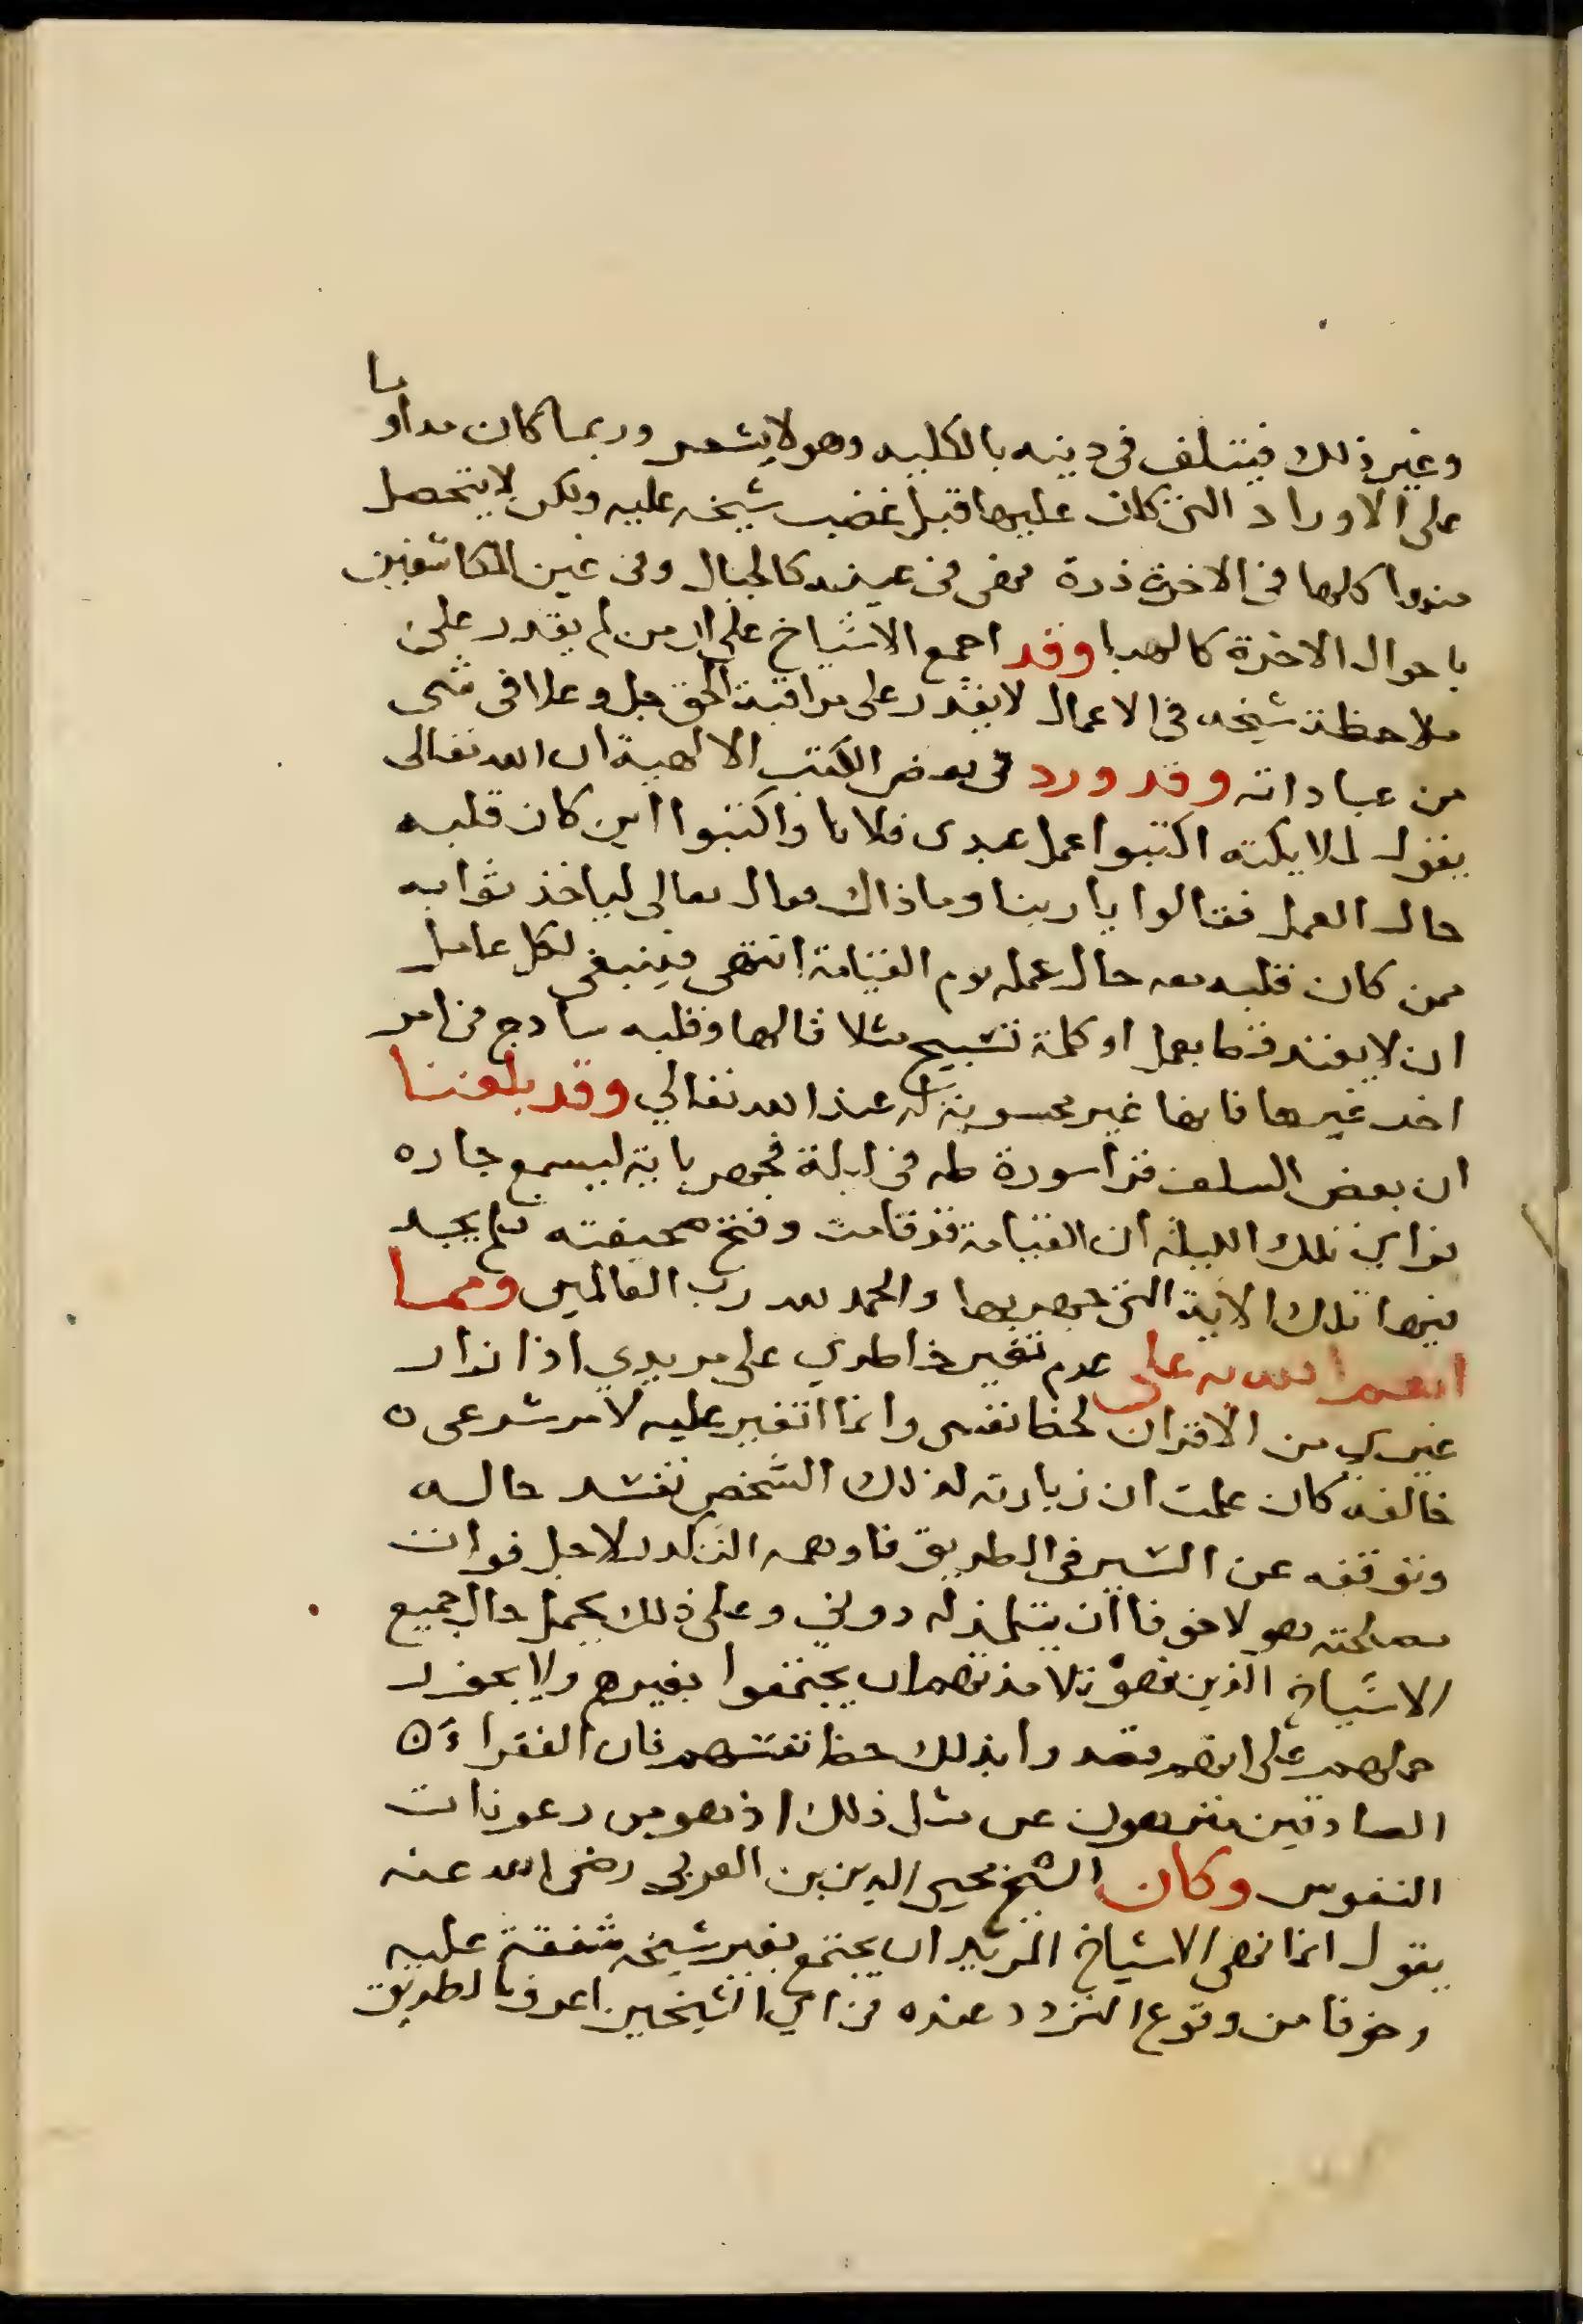 وغير ذلك فيتلف فى دينه بالكلية وهو لا يشعر وربما كان مداوما
على الاوراد التى كان عليها قبل غضب شيخه عليه ولكن لا يتحصل
منها كلها فى الاخرة ذرة فهى فى عينه كالجبال وفى عين المكاشفين
باحوال الاخرة كالهبا وقد اجمع الاشياخ على ان من لم يقدر على
ملاحظة شيخه في الاعمال لا يقدر على مراقبة الحق جل وعلا فى شى
من عباداته وقد ورد فى بعض الكتب الالهية ان الله تعالى
يقول لملايكته اكتبوا عمل عبدى فلانا واكتبوا اين كان قلبه
حال العمل فقالوا يا ربنا وما ذاك فقال تعالى لياخذ ثوابه
ممن كان قلبه معه حال عمله يوم القيامة انتهى فينبغى لكل عامل
ان لا يعتد قط بعمل او كلمة تسبيح مثلا قالها وقلبه سارح فى امر
اخر غيرها فانها غير محسوبة له عند الله تعالي وقد بلغنا
ان بعض السلف قرا سورة طه فى ليلة فجهر باية ليسمع جاره
فراي تلك الليلة ان القيامة قد قامت وفتح صحيفته فلم يجد
فيها تلك الاية التى جهر بها والحمد لله رب العالمين ومما
انعم الله به على عدم تغير خاطري على مريدي اذا زار
غيري من الاقران لحظ نفسى وانما اتغير عليه لامر شرعى ٥
خالفه كان علمت ان زيارته لذلك الشخص تفسد حاله
وتوقفه عن السير فى الطريق فاوهمه التكدر لاجل فوات
مصلحته هو لا خوفا ان يتلمذ له دوني وعلى ذلك يحمل حال جميع
الاشياخ الذين نهوا تلامذتهم ان يجتمعوا بغيرهم ولا يجوز
حملهم على انهم قصدوا بذلك حظ نفسهم فان الفقراء ٥
الصادقين منزهون عن مثل ذلك اذ هو من رعونات
النفوس وكان الشيخ محيى الدين بن العربى رضى الله عنه
يقول انما نهى الاشياخ المريد ان يجتمع بغير شيخه شفقة عليه
وخوفا من وقوع التردد عنده فى اي الشيخين اعرف بالطريق